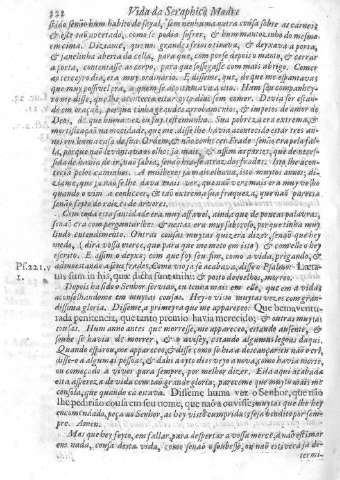 222 Vida da Seraphica Madre
stido senão hum habito de sayal, sem nenhuma outra cousa sobre as carnes
& este tão apertado, como se podia sofrer, & hum mantozinho do mesmo
em cima. Diziame, que nos grandes frios o tirava, & deyxava a porta,
& janelinha aberta da cella, para que, com porse depois o manto, & cerrar
a porta, contentasse ao corpo, para que sossegasse com mais abrigo. Comer
ao terceyro dia, era muy ordinario. E disseme, que, de que me espantava
que muy possivel era, a quem se acostumava a isto. Hum seu companhey-
ro me disse, que lhe acontecia estar oito dias sem comer. Devia ser estan-
do em oração, porque tinha grandes arrobamentos, & impetos de amor de
Deos, de que huma vez eu fuy testemunha. Sua pobreza era extrema, &
mortificação na mocidade, que me disse lhe havia acontecido estar tres an-
nos em huma casa da sua Ordem, & não conhecer Frade, senão era pela fal-
la, porque não levantava os olhos já mais, & assim às partes, que de necessi-
dade havia de ir, não sabia, senão hiase atraz dos frades. Isto lhe acon-
tecia pelos caminhos. A mulheres já mais olhava, isto muytos annos; di-
ziame, que já não se lhe dava mais ver, que não ver: mas era muy velho
quando o vim a conhecer, & tão extrema sua fraqueza, que não parecia
senão feyto de raizes de arvores.
Com toda esta santidade era muy affavel, ainda que de poucas palavras,
senão era com perguntarlhe: & nestas era muy saboroso, porque tinha muy
lindo entendimento. Outras cousas muytas quizera dizer, senão que hey
medo, (dirá vossa mercè, que para que me meto em isto) & com elle o hey
escrito. E assim o deyxo; com que foy seu fim, como a vida, prègando, &
admoestando a seus Frades. Como vio já se acabava, disse o Psalmo: Læta-
Ps. 121. v. 1. tus sum in his, quæ dicta sunt mihi: & posto de joelhos, morreo.
Depois ha sido o Senhor servido, eu tenha mais em elle, que em a vida;
aconselhandome em muytas cousas. Hey-o visto muytas vezes com gran-
dissima gloria. Disseme, a primeyra que me appareceo: Que bemaventu-
rada penitencia, que tanto premio havia merecido; & outras muytas
cousas. Hum anno antes que morresse, me appareceo, estando ausente, &
soube se havia de morrer, & o avisey, estando algumas legoas daqui.
Quando espirou, me appareceo, & disse: como se hia a descançar: eu não o cri,
disse-o a algumas pessoas, & dahi a oyto dias veyo a nova, como havia morto,
ou começado a viver para sempre, por melhor dizer. Eila aqui acabada
esta aspereza de vida com tão grande gloria; pareceme que muyto mais me
consola, que quando cá estava. Disseme huma vez o Senhor, que não
lhe pedirião cousa em seu nome, que não a ouvisse; muytas que lhe hey
encomendado, peça ao Senhor, as hey visto cumpridas: seja bendito por sem-
pre. Amen.
Mas que hey feyto, em fallar, para despertar a vossa mercè, a não estimar
em nada, cousa desta vida, como se não o soubesse, ou não estivera já de-
termi-